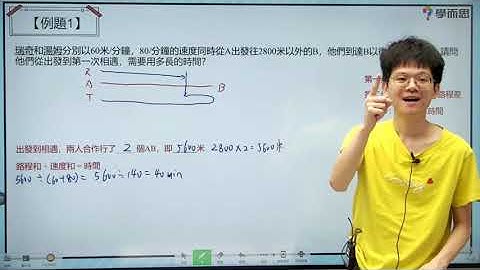 【例題1】
學而思
瑞奇和湯姆分別以60米/分鐘，80/分鐘的速度同時從A出發往2800米以外的B，他們到達B以
請問
他們從出發到第一次相遇，需要用多長的時間？
R
A
B
T
第一
路程差
時間
出發到相遇，兩人合作行了 2 個AB，即 5600米 2800×2=5600米
路程和÷速度和=時間
5600÷(60+80)= 5600÷140=40min